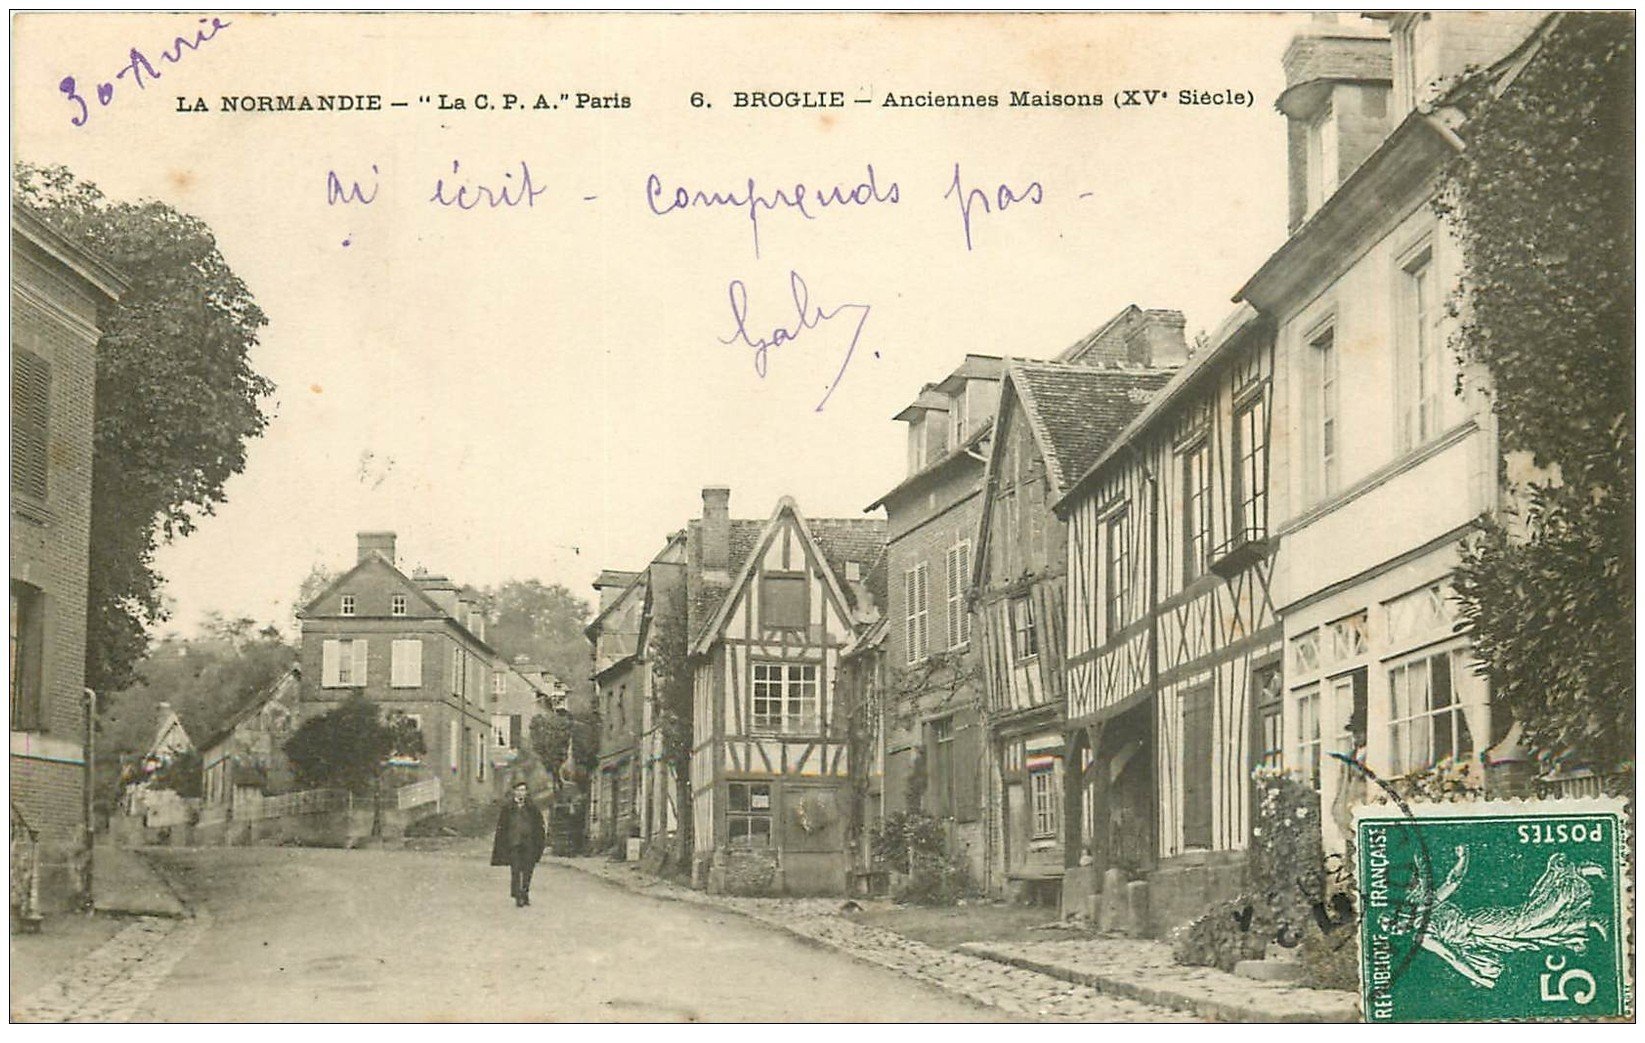 30 Avril
LA NORMANDIE – "La C. P. A." Paris 6. BROGLIE – Anciennes Maisons (XVe Siècle)
ai écrit - comprends pas -
Gaby.
POSTES
RÉPUBLIQUE FRANÇAISE
5c